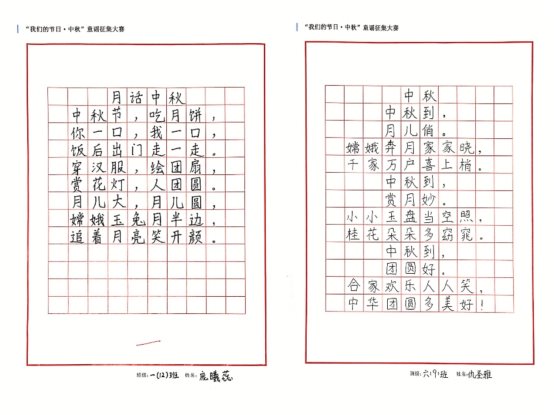 “我们的节日·中秋”童谣征集大赛
月话中秋
中秋节，吃月饼，
你一口，我一口，
饭后出门走一走。
穿汉服，绘团扇，
赏花灯，人团圆。
月儿大，月儿圆，
嫦娥玉兔月半边，
追着月亮笑开颜。
班级：一(12)班 姓名：庞曦蕊
“我们的节日·中秋”童谣征集大赛
中秋
中秋到，
月儿俏。
嫦娥奔月家家晓，
千家万户喜上梢。
中秋到，
赏月妙。
小小玉盘当空照，
桂花朵朵多窈窕。
中秋到，
团圆好。
合家欢乐人人笑，
中华团圆多美好！
班级：六(9)班 姓名：仇圣雅